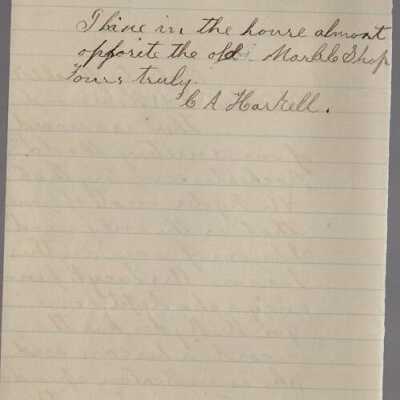 I live in the house almost
opposite the old Marble Shop
Yours truly.
C A Haskell.